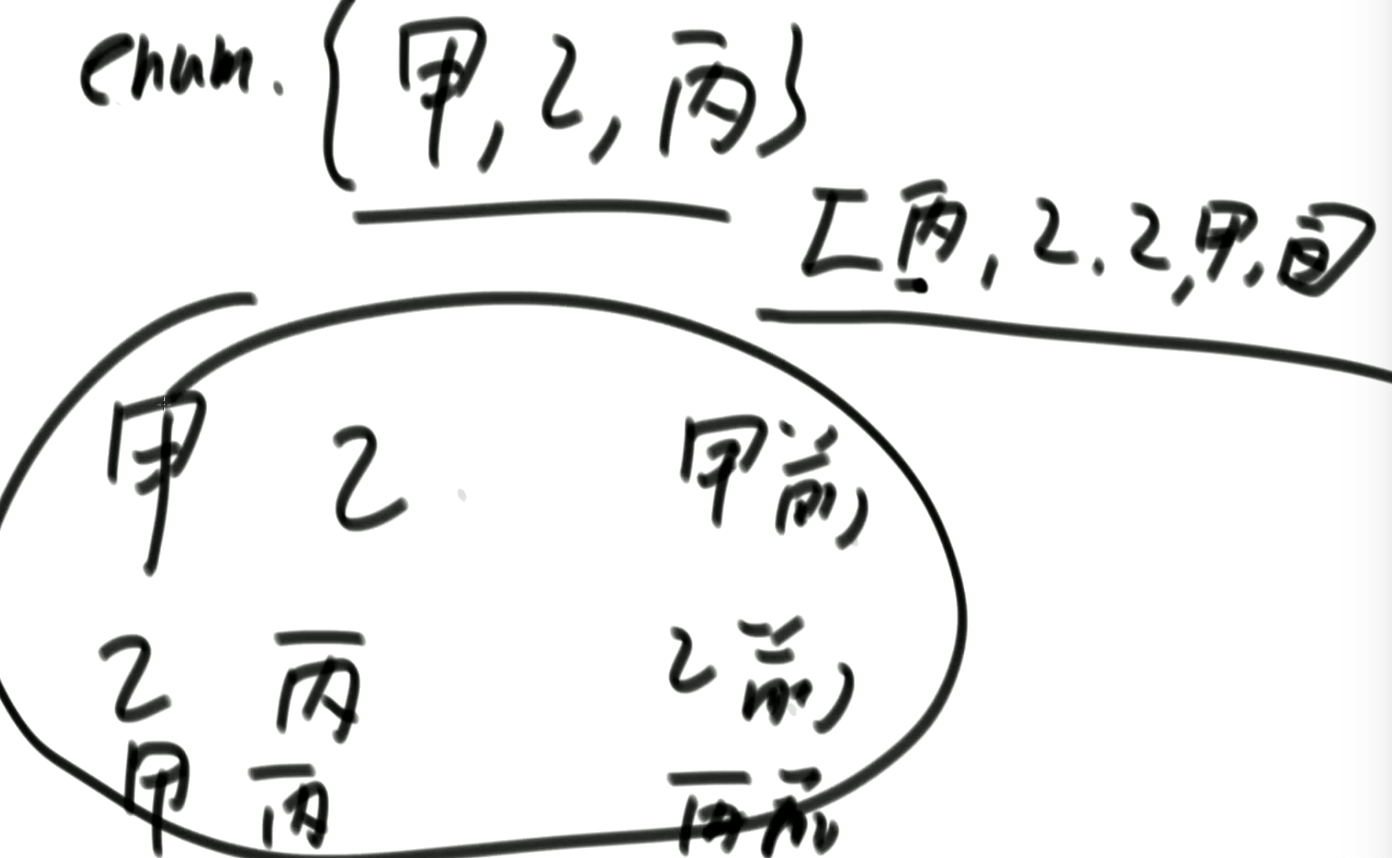 enum. {甲, 乙, 丙}
[丙, 乙, 乙, 甲,
甲 乙 甲前
乙 丙 乙前
甲 丙 丙前